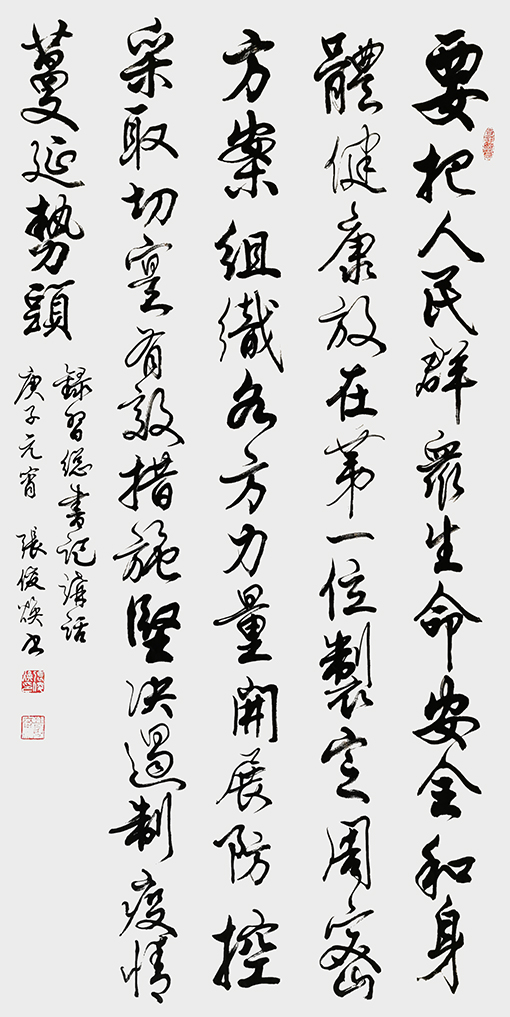 要把人民群眾生命安全和身
體健康放在第一位製定周密
方案組織各方力量開展防控
采取切實有效措施堅决遏制疫情
蔓延勢頭
録習總書記講話
庚子元宵 張俊煥书